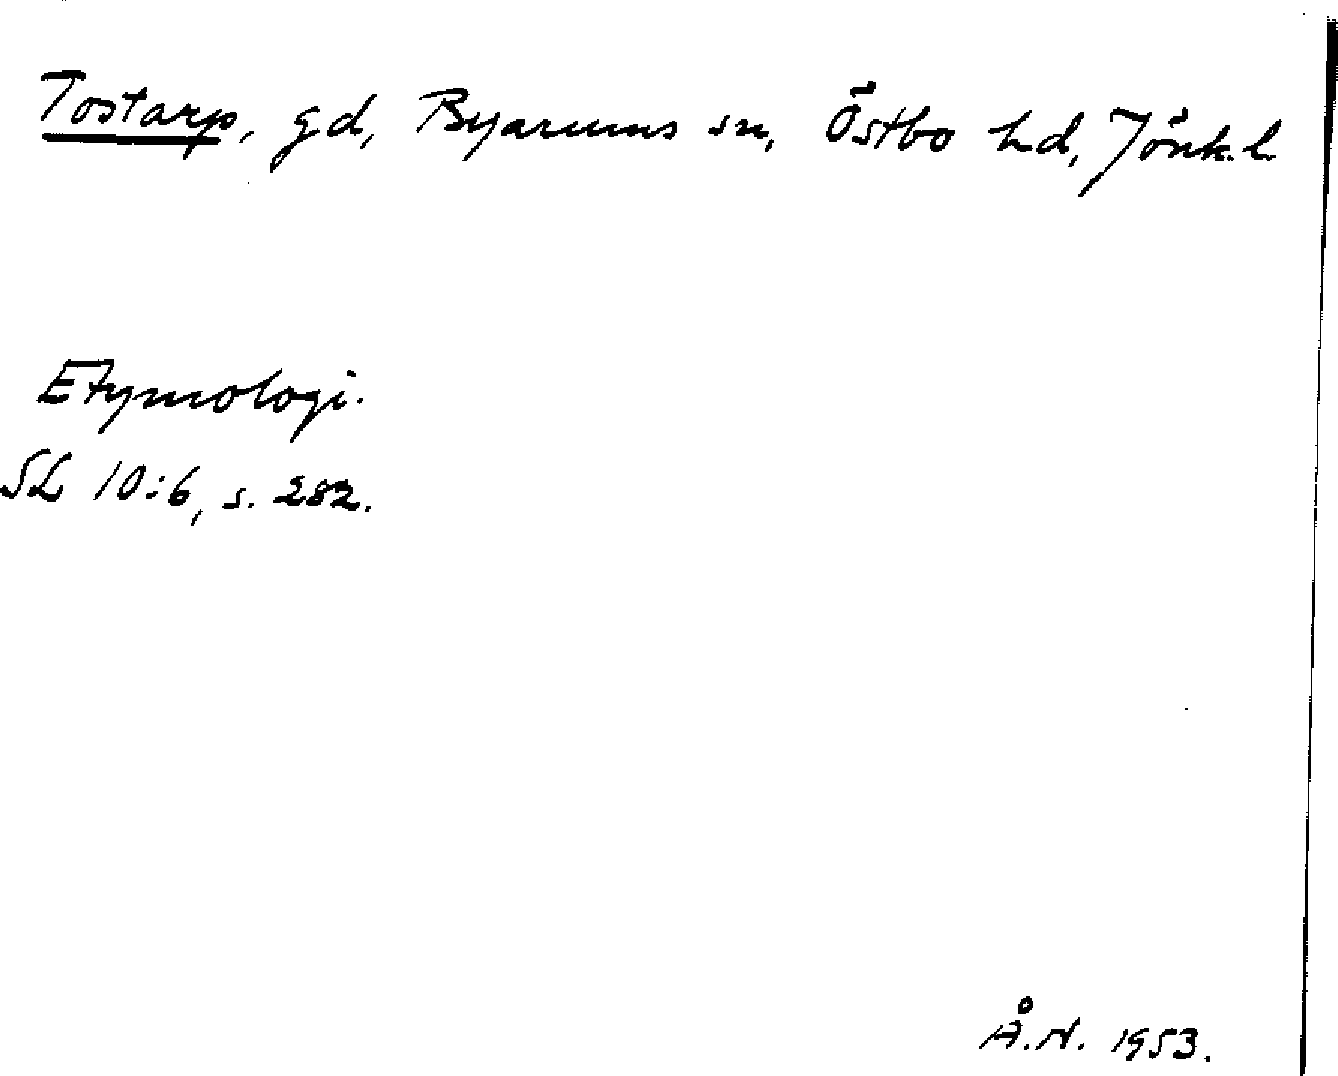 Tostarp, gd, Byarums sn, Östbo hd, Jönk.l.
Etymologi.
SL 10:6, s. 282.
Å.N. 1953.